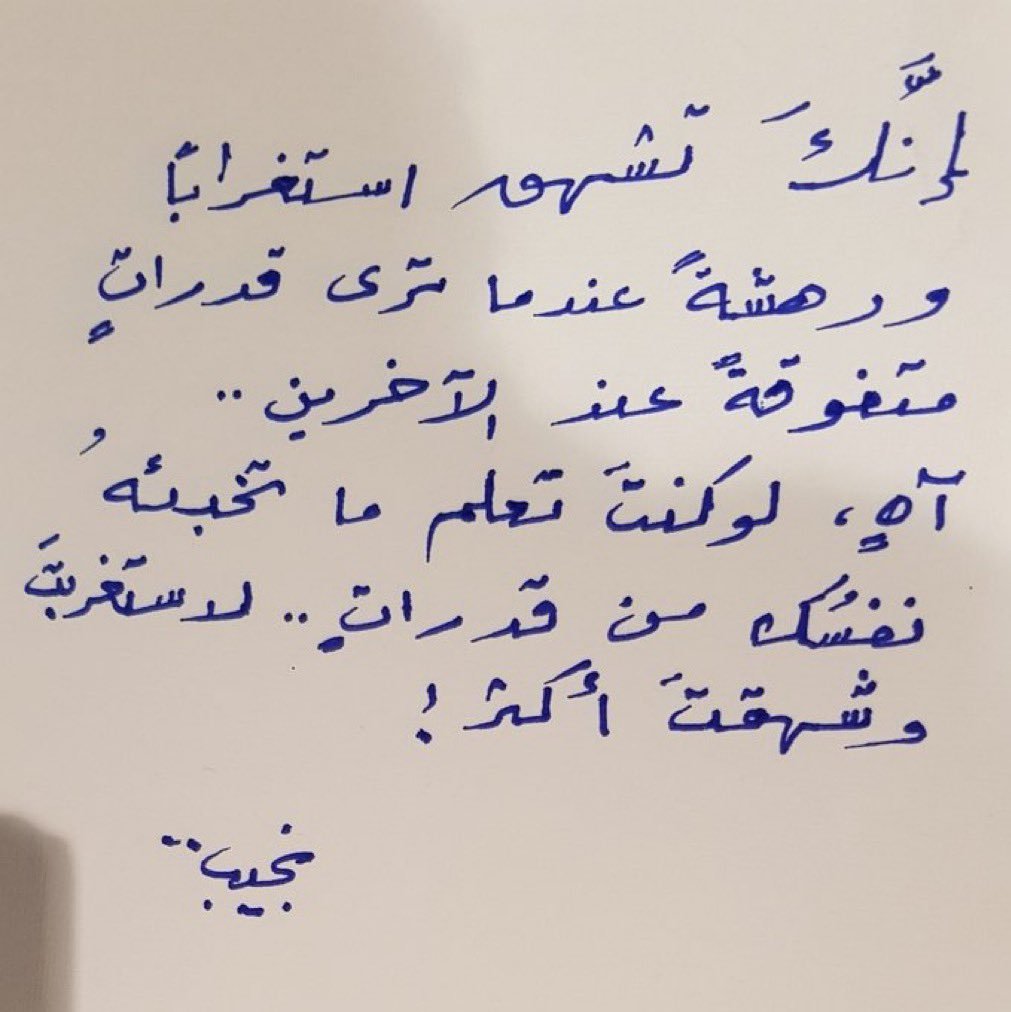 إنَّكَ تشهق استغرابًا
ودهشةً عندما ترى قدراتٍ
متفوقةً عند الآخرين ..
آهٍ، لو كنتَ تعلم ما تخبئهُ
نفسُك من قدراتٍ .. لاستغربتَ
وشهقتَ أكثر !
نجيب ..